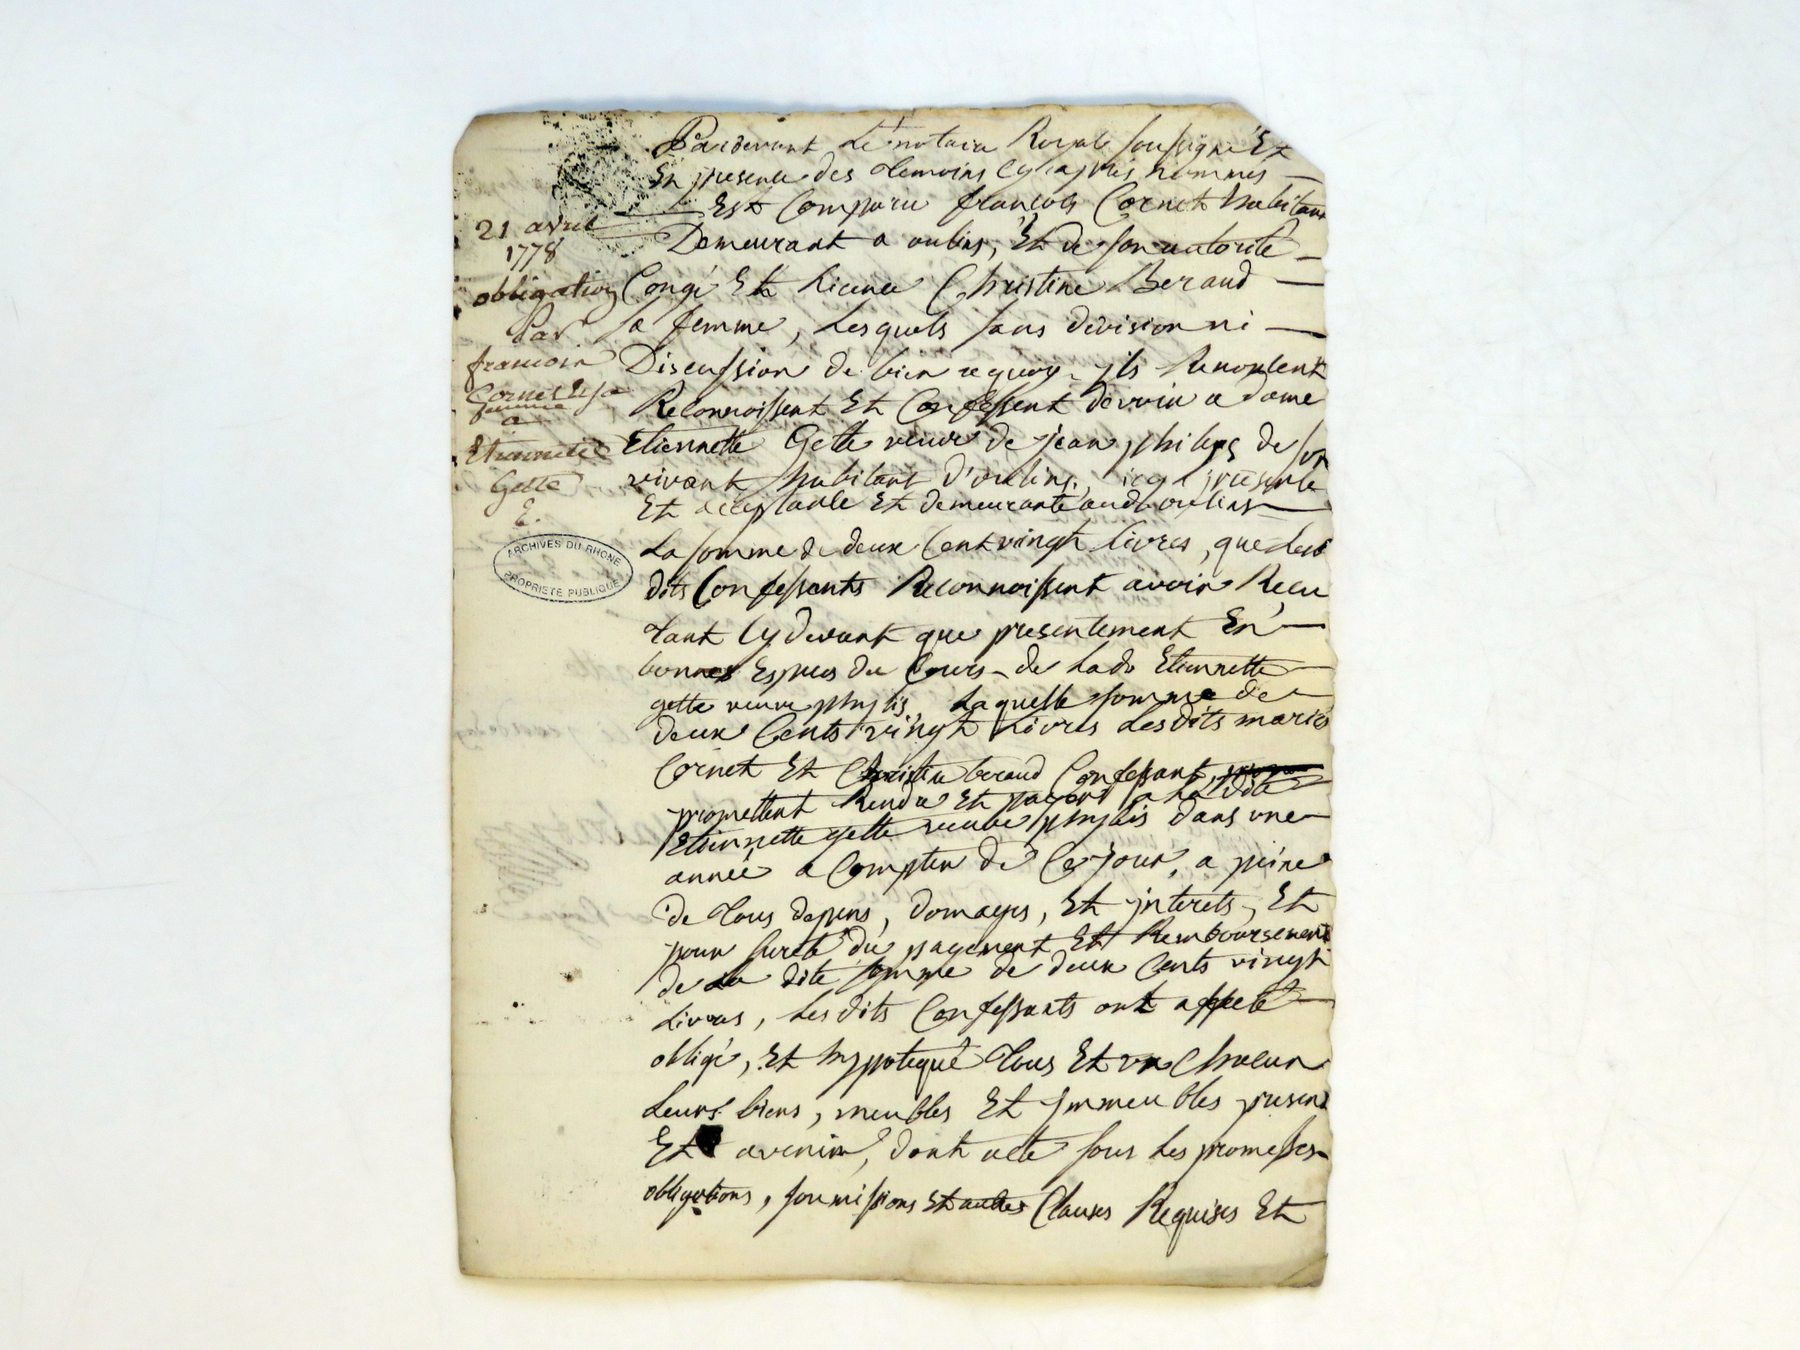 21 avril
1778
obligation
Par
francois
Cornet et sa
femme
a
Etiennette
Gette
E.
ARCHIVES DU RHONE
PROPRIETE PUBLIQUE
Pardevant Le notaire Royal soussigné Et
En presence des temoins Cy apres nommes
Est Comparu francois Cornet habitant
Demeurant a oulins, Et de son autorité
Congé Et licence Christine Beraud
sa femme, Lesquels sans division ni
Discussion de bien a quoy ils Renoncent
Reconnoissent Et Confessent devoir a dame
Etiennette Gette veuve de jean philips de son
vivant habitant d'oulins, icy presente
Et acceptante Et demeurante aud. oulins
La somme de deux Cent vingt livres, que Les
dits Confessants Reconnoissent avoir Recu
tant Cy devant que presentement En
bonnes Espèces du Cours de Lade Etiennette
gette veuve Laquelle somme de
deux Cents vingt Livres Lesdits mariés
Cornet Et Christine beraud Confessant
promettent Rendre Et payer a La dite
Etiennette gette veuve dans une
année a Compter de Ce jour, a peine
de tous depens, domages, Et interets, Et
pour sureté du payement Et Remboursement
de La dite somme de deux Cents vingt
Livres, Les dits Confessants ont affecté
obligé, Et hypotequé tous Et un Chacun
Leurs biens, meubles Et immeubles presens
Et avenir, dont acte sous Les promesses
obligations, soumissions Et autres Clauses Requises Et